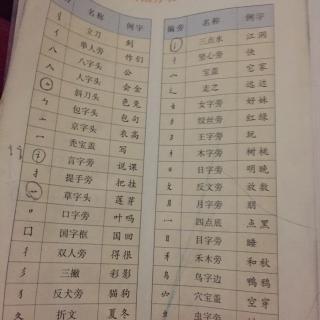 名称 例字 偏旁 名称 例字
刂 立刀 到 氵 三点水 江河
亻 单人旁 作们 忄 竖心旁 快
八 八字头 公 宀 宝盖 它家
人 人字头 会金 辶 走之 远近
斜刀头 色兔 女 女字旁 好妹
勹 包字头 包句 纟 绞丝旁 红绿
亠 京字头 衣高 王 王字旁 玩
冖 秃宝盖 写 木 木字旁 树桃
讠 言字旁 说课 日 日字旁 明晚
扌 提手旁 把拉 攵 反文旁 放数
艹 草字头 莲芽 月 月字旁 朋
口 口字旁 叶吗 灬 四点底 点黑
囗 国字框 国回 目 目字旁 睡
彳 双人旁 得很 禾 禾木旁 和秋
彡 三撇 彩影 鸟 鸟字边 鸭鸦
犭 反犬旁 猫狗 穴宝盖 空穿
夂 折文 夏冬 虫 虫字旁